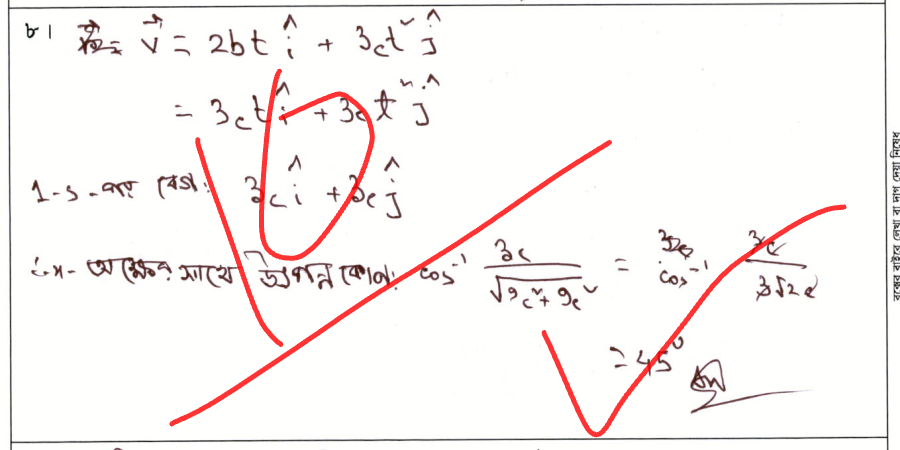 ৮। v⃗ = 2bt î + 3ct² ĵ
= 3ct î + 3ct² ĵ
1-s-পর বেগ: 3c î + 3c ĵ
∴ x- অক্ষের সাথে উৎপন্ন কোণ: cos⁻¹ 3c/√(9c²+9c²) = cos⁻¹ 3c/3√2c
= 45° Ans
বক্সের বাইরে লেখা বা দাগ দেয়া নিষেধ